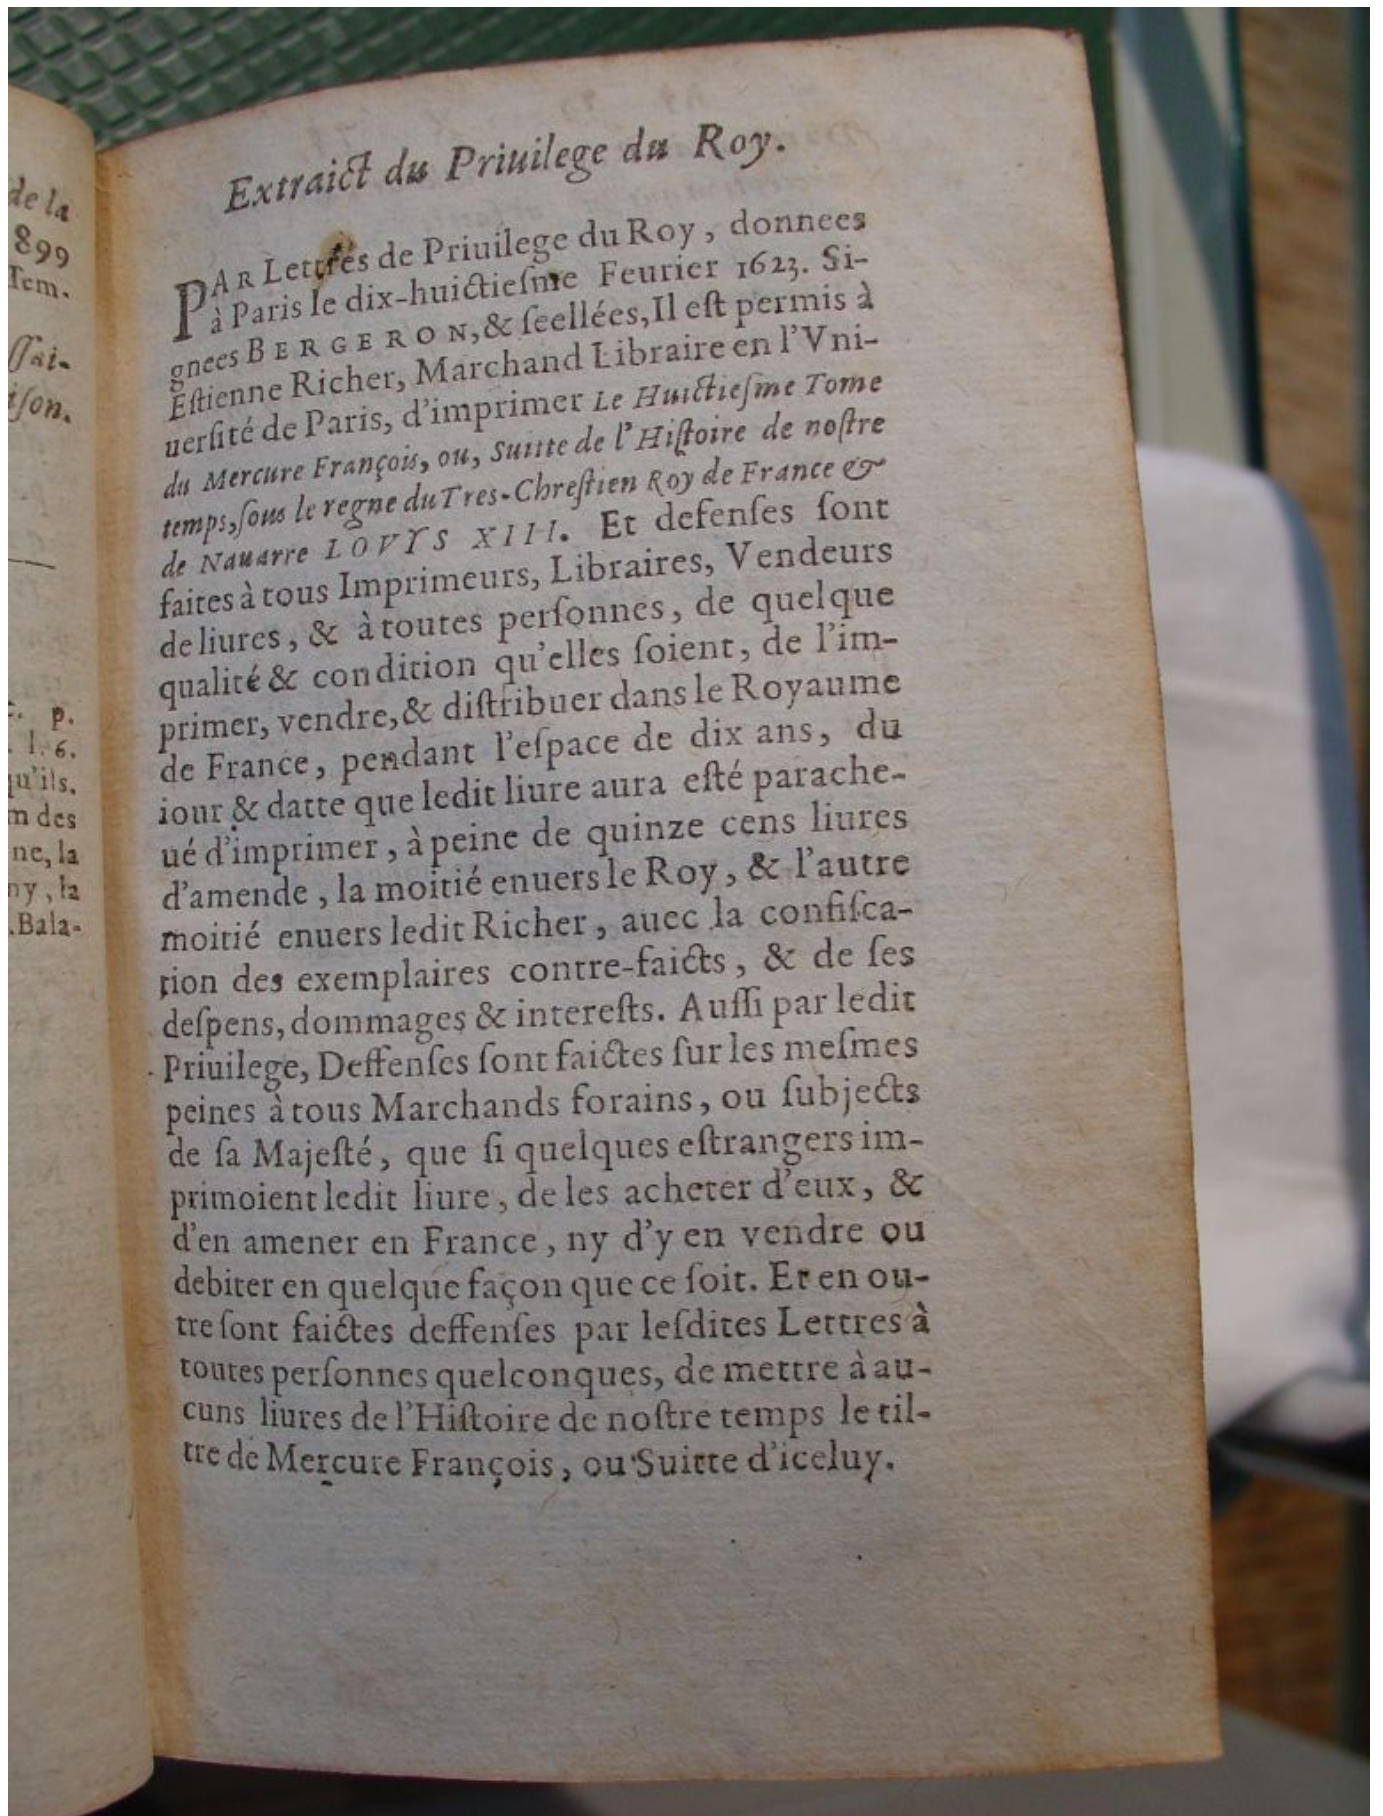 de la
899
Tem.
ſſai-
iſon.
p.
l. 6.
qu'ils.
n des
ne, la
ny, la
.Bala-
Extraict du Priuilege du Roy.
PAR Lettres de Priuilege du Roy, donnees
à Paris le dix-huictieſme Feurier 1623. Si-
gnees BERGERON, & ſeellées, Il eſt permis à
Eſtienne Richer, Marchand Libraire en l'Vni-
uerſité de Paris, d'imprimer Le Huictieſme Tome
du Mercure François, ou, Suitte de l'Hiſtoire de noſtre
temps, ſous le regne du Tres-Chreſtien Roy de France &
de Nauarre LOVYS XIII. Et defenſes ſont
faites à tous Imprimeurs, Libraires, Vendeurs
de liures, & à toutes perſonnes, de quelque
qualité & condition qu'elles ſoient, de l'im-
primer, vendre, & diſtribuer dans le Royaume
de France, pendant l'eſpace de dix ans, du
iour & datte que ledit liure aura eſté parache-
ué d'imprimer, à peine de quinze cens liures
d'amende, la moitié enuers le Roy, & l'autre
moitié enuers ledit Richer, auec la confiſca-
tion des exemplaires contre-faicts, & de ſes
deſpens, dommages & intereſts. Auſſi par ledit
Priuilege, Deffenſes ſont faictes ſur les meſmes
peines à tous Marchands forains, ou ſubjects
de ſa Majeſté, que ſi quelques eſtrangers im-
primoient ledit liure, de les acheter d'eux, &
d'en amener en France, ny d'y en vendre ou
debiter en quelque façon que ce ſoit. Et en ou-
tre ſont faictes deffenſes par leſdites Lettres à
toutes perſonnes quelconques, de mettre à au-
cuns liures de l'Hiſtoire de noſtre temps le til-
tre de Mercure François, ou Suitte d'iceluy.